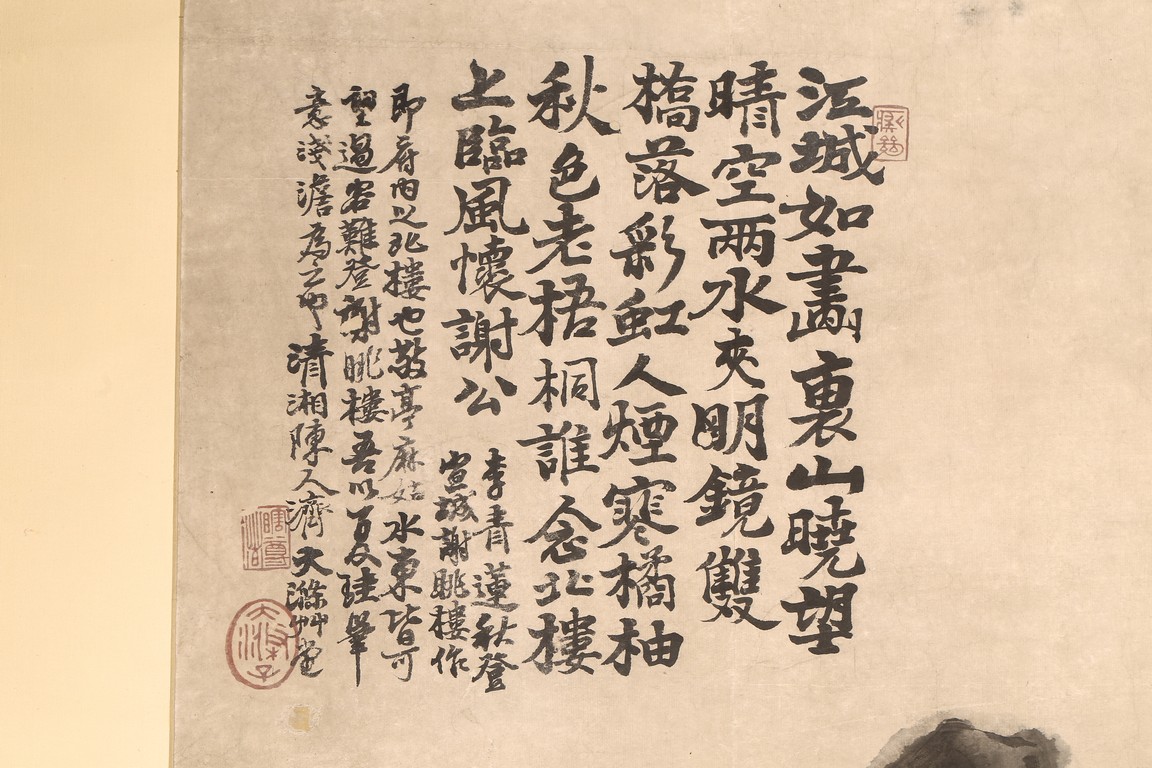 江城如畫裏山曉望
晴空兩水夾明鏡雙
橋落彩虹人煙寒橘柚
秋色老梧桐誰念北樓
上臨風懷謝公
李青蓮秋登
宣城謝朓樓作
即府內之北樓也敬亭麻姑水東皆可
望過客難登謝朓樓吾以筆
意淺澹為之 清湘陳人濟大滌艸堂
大滌子